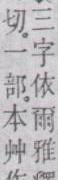 三字依爾雅
切。一部。本艸